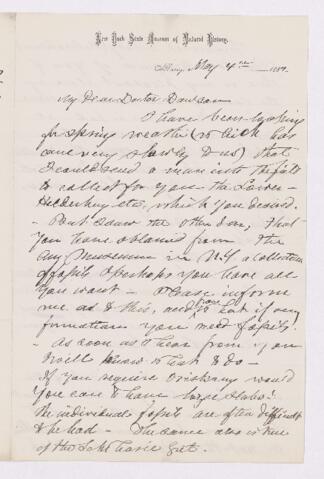 New York State Museum of Natural History.
Albany, May 4th 188
My Dear Doctor Dawson
I have been hoping
for Spring weather (which has
come very slowly to us) that
I could send a man into the field
to collect for you the Lower
Helderberg etc. which you desired.
But I saw the other day, that
you have obtained from the
Am Museum in N.Y a collection
of fossils & perhaps you have all
you want - Please inform
me as to this, and from what if any
formations you need fossils.
As soon as I hear from you
I will know what to do -
If you require Oriskany would
you care to have large slabs?
The individual fossils are often difficult
to be had - The same also is true
of the Schoharie Grit.